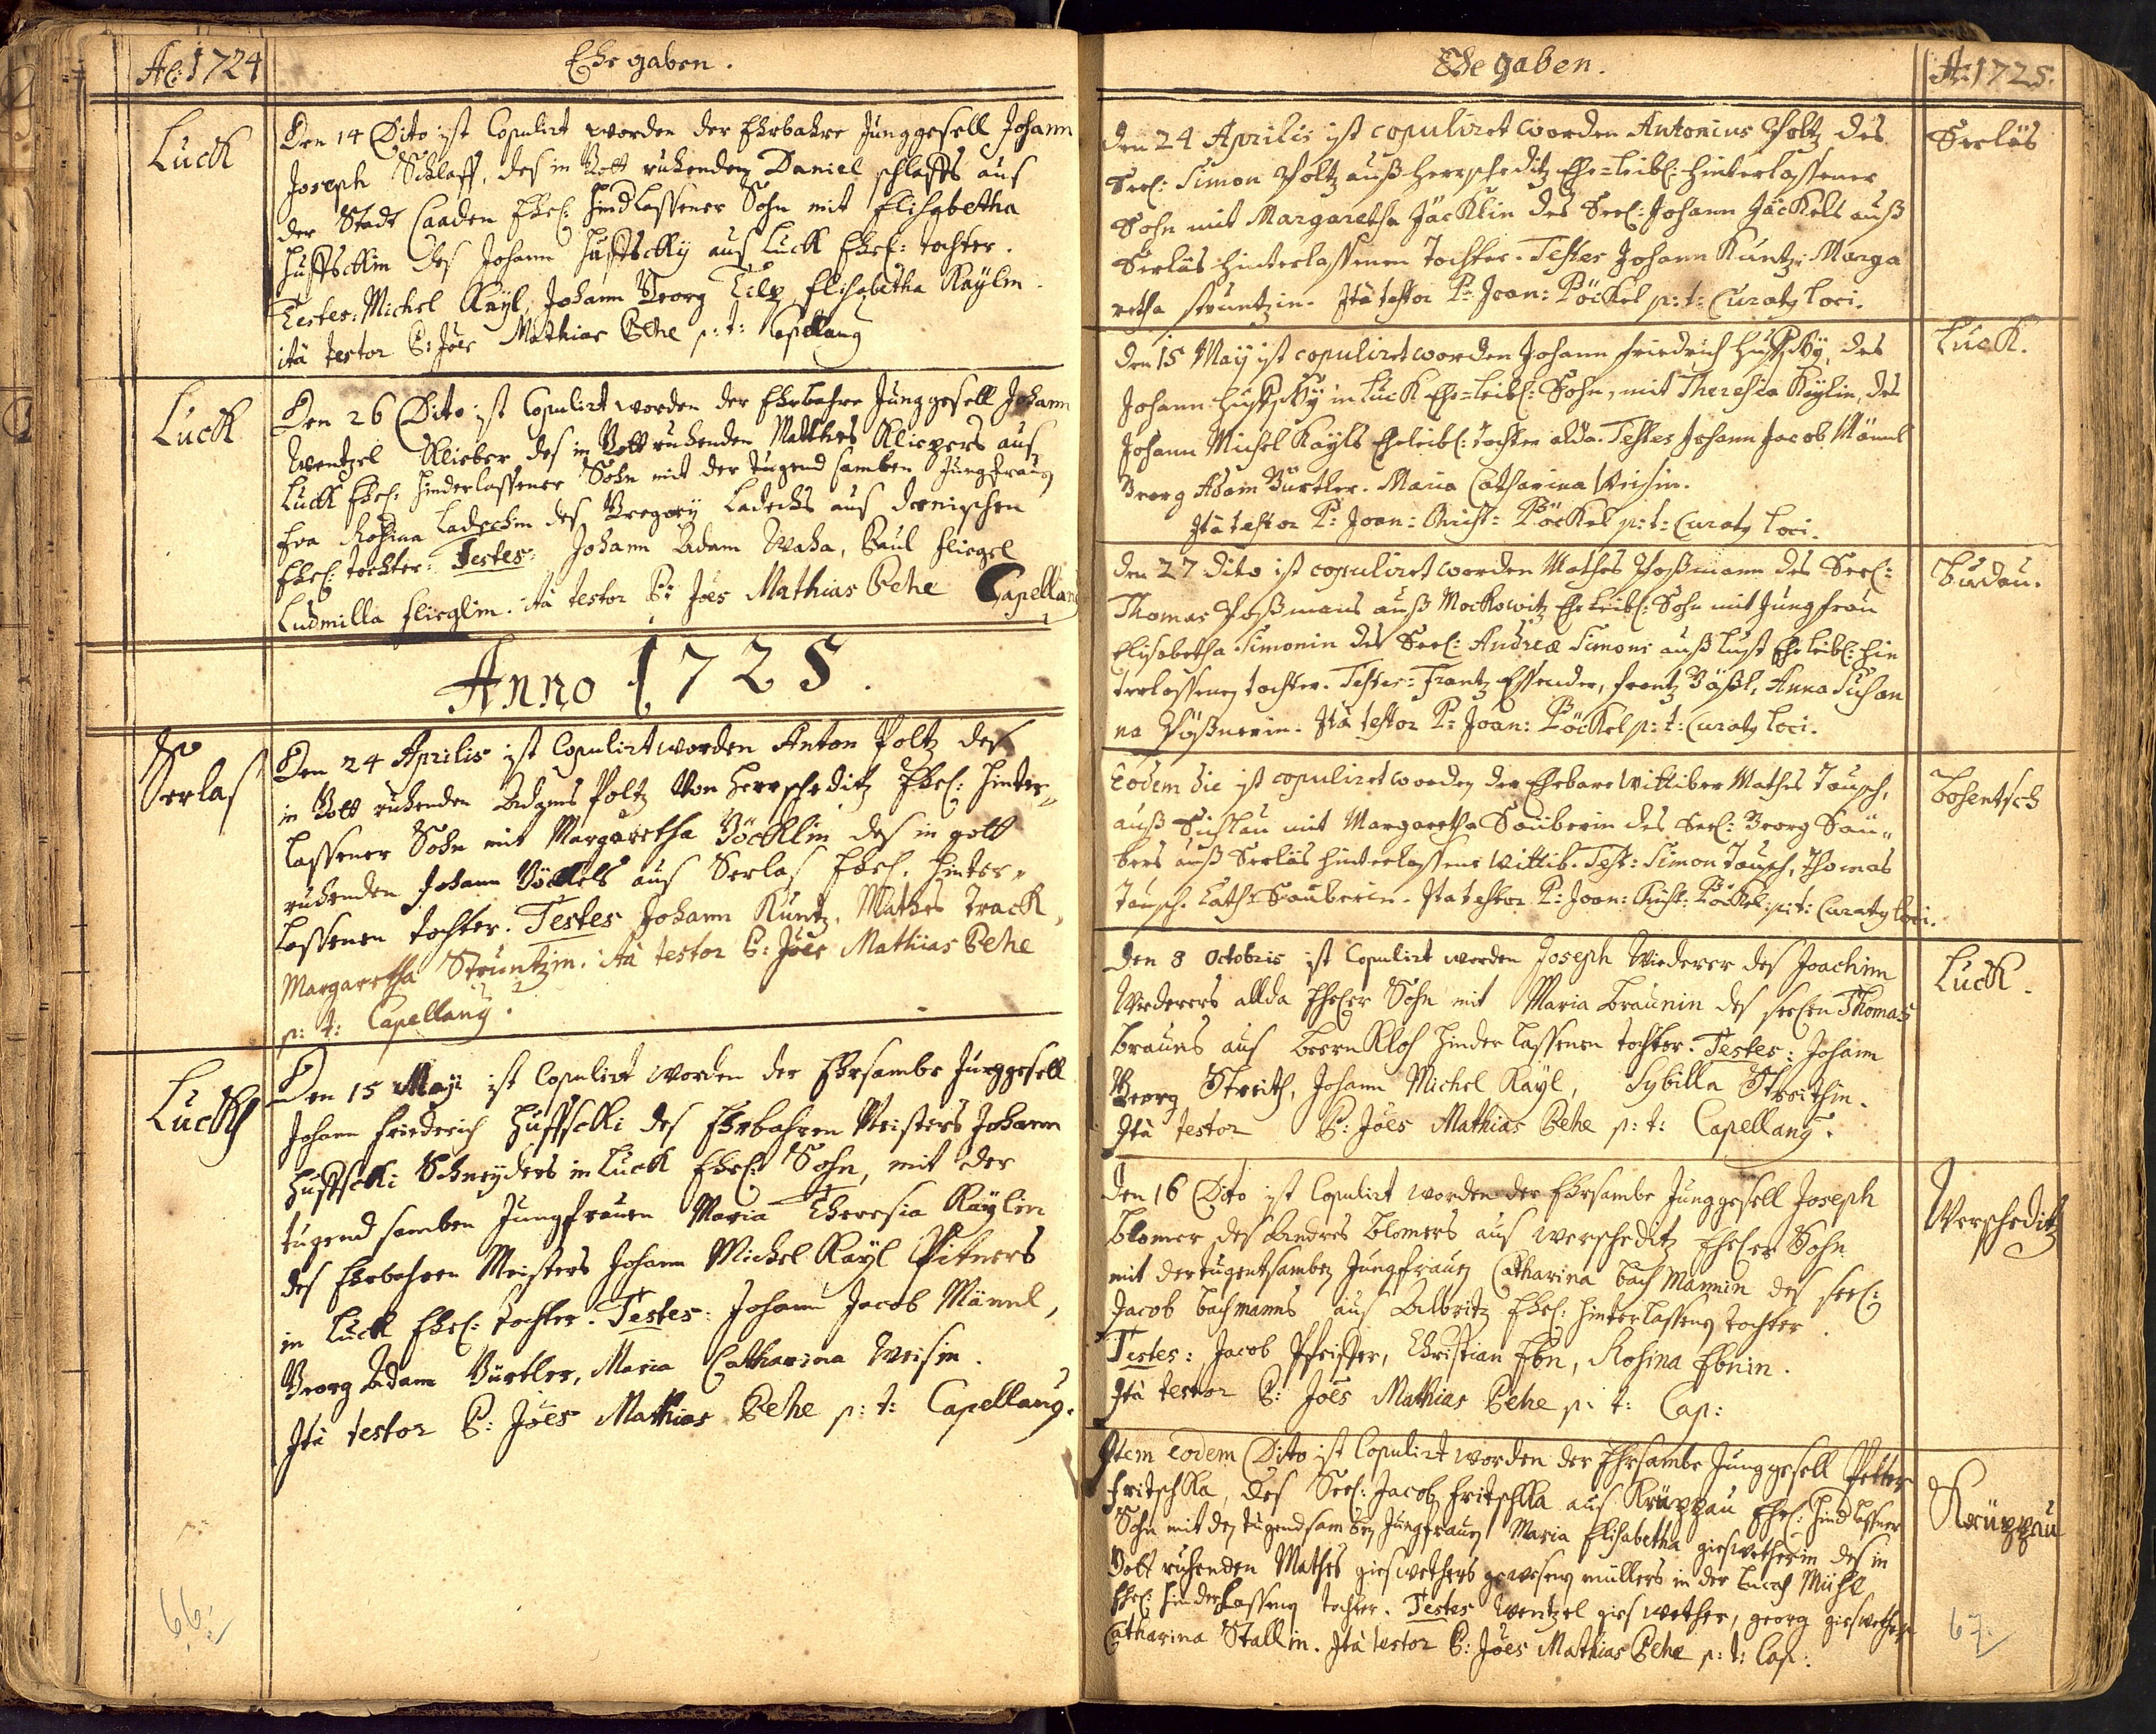 Ao: 1724
Ehe gaben.
Luck
Den 14 Dito ist Copulirt worden der Ehrbahre Junggesell Johann
Joseph Schlaff, des in Gott ruhenden Daniel schlaffs aus
der Stadt Caaden Ehel: hindlassener Sohn mit Elisabetha
Huffsckin des Johann Huffscky aus Luck Ehel: tochter.
Testes: Michel Kaÿl, Johann Georg Tilp, Elisabetha Kaÿlin.
ità testor P: Joes Mathias Behe p: t: Capellanus
Luck
Den 26 Dito ist Copulirt worden der Ehrbahre Junggesell Johann
Wentzel Klieber des in Gott ruhenden Matthes Kliebers aus
Luck Ehel: hinderlassener Sohn mit der tugend samben Jungfrauen
Eva Rosina Ladeckin des Gregory Ladecks aus
Ehel: tochter: Testes: Johann Adam Waha, Paul Fliegel
Ludmilla Flieglin. ità testor P: Joes Mathias Behe Capellanus
Anno 1725.
Serlas
Den 24 Aprilis ist Copulirt worden Anton Poltz des
in Gott ruhenden Adams Poltz von Herrscheditz Ehel: hinter-
lassener Sohn mit Margaretha Böcklin des in gott
ruhenden Johann Böckels aus Serlas Ehel: hinter-
lassenen tochter. Testes Johann Kuntz, Mathes Track,
Margaretha Struntzin. ità testor P: Joes Mathias Behe
p: t: Capellanus.
Luckh
Den 15 Maji ist Copulirt worden der Ehrsambe Junggesell
Johann Friederich Huffscki des Ehrbahren Meisters Johann
Huffscki Schneÿders in Luck Ehel: Sohn, mit der
tugend samben Jungfrauen Maria Theresia Kaÿlin
des Ehrbahren Meisters Johann Michel Kaÿl Pitners
in Luck Ehel: tochter. Testes: Johann Jacob Männl,
Georg Adam Bürtler, Maria Catharina Weisin.
Ità testor P: Joes Mathias Behe p: t: Capellanus.
66.
Ehe gaben.
Ao: 1725.
den 24 Aprilis ist copuliret worden Antonius Poltz des
Seel: Simon Poltz auß Herrscheditz Ehe-leibl: hinterlassener
Sohn mit Margaretha Jäcklin des Seel: Johann Jäckels auß
Serläs hinterlassenen Tochter. Testes Johann Kuntz. Marga
retha Struntzin. Ità testor P: Joan: Böckel p: t: Curatus loci.
Serläs
den 15 Maÿ ist copuliret worden Johann Friedrich Huffskÿ, des
Johann Huffskÿ in Luck Ehe-leibl: Sohn, mit Theresia Kaÿlin, des
Johann Michel Kaÿls Eheleibl: tochter alda. Testes Johann Jacob Männl
Georg Adam Bürtler. Maria Catharina Weisin.
Ità testor P: Joan: Christ: Böckel p: t: Curatus loci.
Luck.
den 27 dito ist copuliret worden Mathes Poßmann des Seel:
Thomas Poßmans auß Mockowitz Eheleibl: Sohn mit Jungfrau
Elisabetha Simonin des Seel: Andreæ Simons auß Lust Eheleibl: hin
terlassenen tochter. Testes: Frantz Essender, Frantz Bäßl, Anna Susan
na Pößnerin. Ità testor P: Joan: Böckel p: t: Curatus loci.
Budau.
Eodem die ist copuliret worden der Ehrbare Wittiber Mathes Tausch,
auß Sichlau mit Margaretha Sauberin des Seel: Georg Sau-
bers auß Serläs hinterlassene Wittib. Test: Simon Tausch, Thomas
Tausch. Cath: Sauberin. Ita testor P: Joan: Christ: Böckel: p: t: Curatus loci.
Bohentsch
Den 8 Octobris ist Copulirt worden Joseph Wiederer des Joachim
Wiederers allda Eheler Sohn mit Maria Braunin des seelen Thomas
Brauns aus Beernkloh hinder lassenen tochter. Testes: Johann
Georg Streith, Johann Michel Kaÿl, Sybilla Streithin.
Ità testor P: Joes Mathias Behe p: t: Capellanus.
Luck.
Den 16 Dito ist Copulirt worden der Ehrsambe Junggesell Joseph
Blomer des Andres Blomers aus Werscheditz Eheler Sohn
mit der tugentsamben Jungfrauen Catharina Bachmannin des seel:
Jacob Bachmanns aus Albritz Ehel: hinterlassene tochter.
Testes: Jacob Pfeiffer, Christian Ebn, Rosina Ebnin.
Ità testor P: Joes Mathias Behe p: t: Cap:
Werscheditz
Item eodem Dito ist Copulirt worden der Ehrsambe Junggesell Petter
Fritschka, des Seel: Jacob Fritschka aus Krüppau Ehel: hindlassner
Sohn mit der tugendsamben Jungfrauen Maria Elisabetha gieswetherin des in
Gott ruhenden Mathes gieswethers gewesenen müllers in der Mühl
Ehel: hinderlassene tochter. Testes Wentzel gieswether, georg gieswether
Catharina Stallin. Ità testor P: Joes Mathias Behe p: t: Cap:
Krüppau
67.